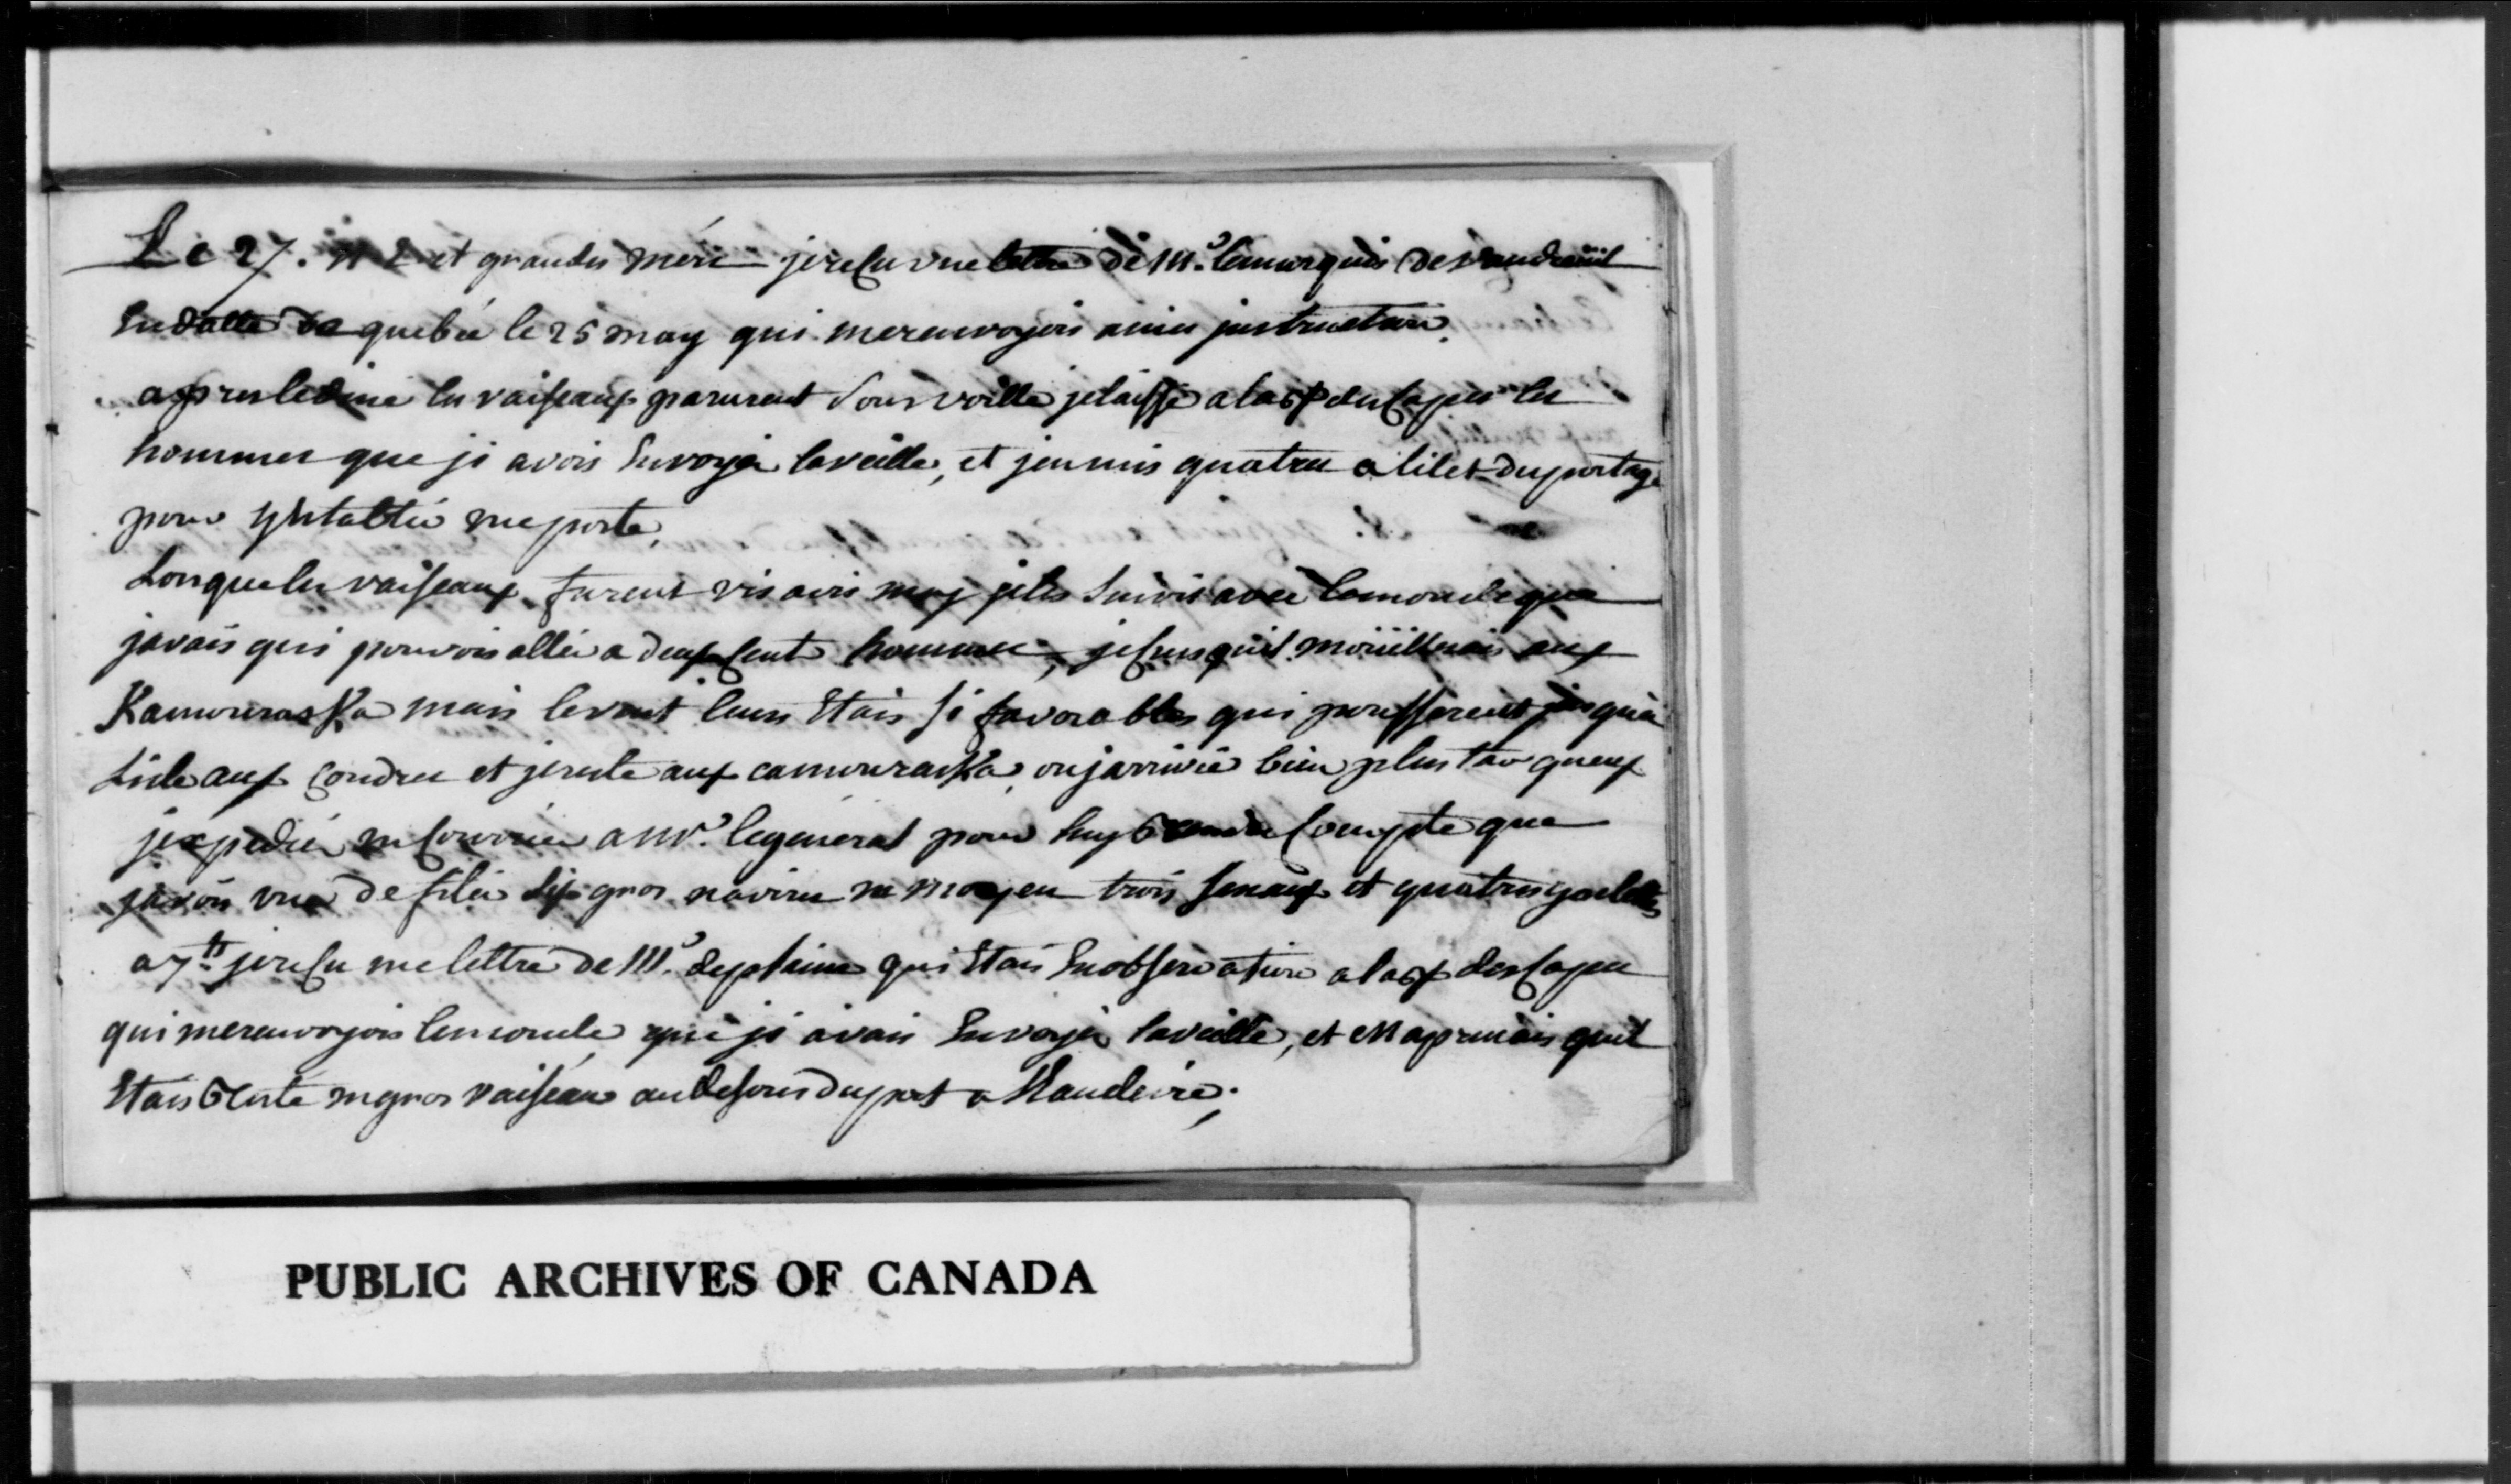 Le 27. N E et grandes méré je resu une lettre de Mr. le marquis de vaudreuil
En datte de quebec le 25 may qui me renvoyois a mes instructions.
apres le dine les vaiseaux parurent sous voille je laisse a lase du capes les
hommes que ji avois Envoyer la veille, et jen mis quatres a lilet du portage
pour y Establir une poste,
Lorsque les vaiseaux furent vis avis moy je les Suivis avec le monde que
javais qui pouvois aller a deux sent hommes, je crus quil moüilleroi aux
KamourasKa mais le vent leurs Etais si favorables qui pousserent jusqua
Lisle aux coudres et je reste aux camourasKa, ou jarrivée bien plus tar queux
jexpedier un Courrier a Mr. le general pour luy rendre Compte que
javois vue defiler dix gros navires un moyen trois senaux et quatres goelettes
a 7h je resu une lettre de Mr. deplaine qui Etais En observations a lase des Capes
qui me renvoyois le monde que ji avais Envoyer la veille, et Maprenais quil
Etais Reste un gros vaiseau au desous du port a
PUBLIC ARCHIVES OF CANADA